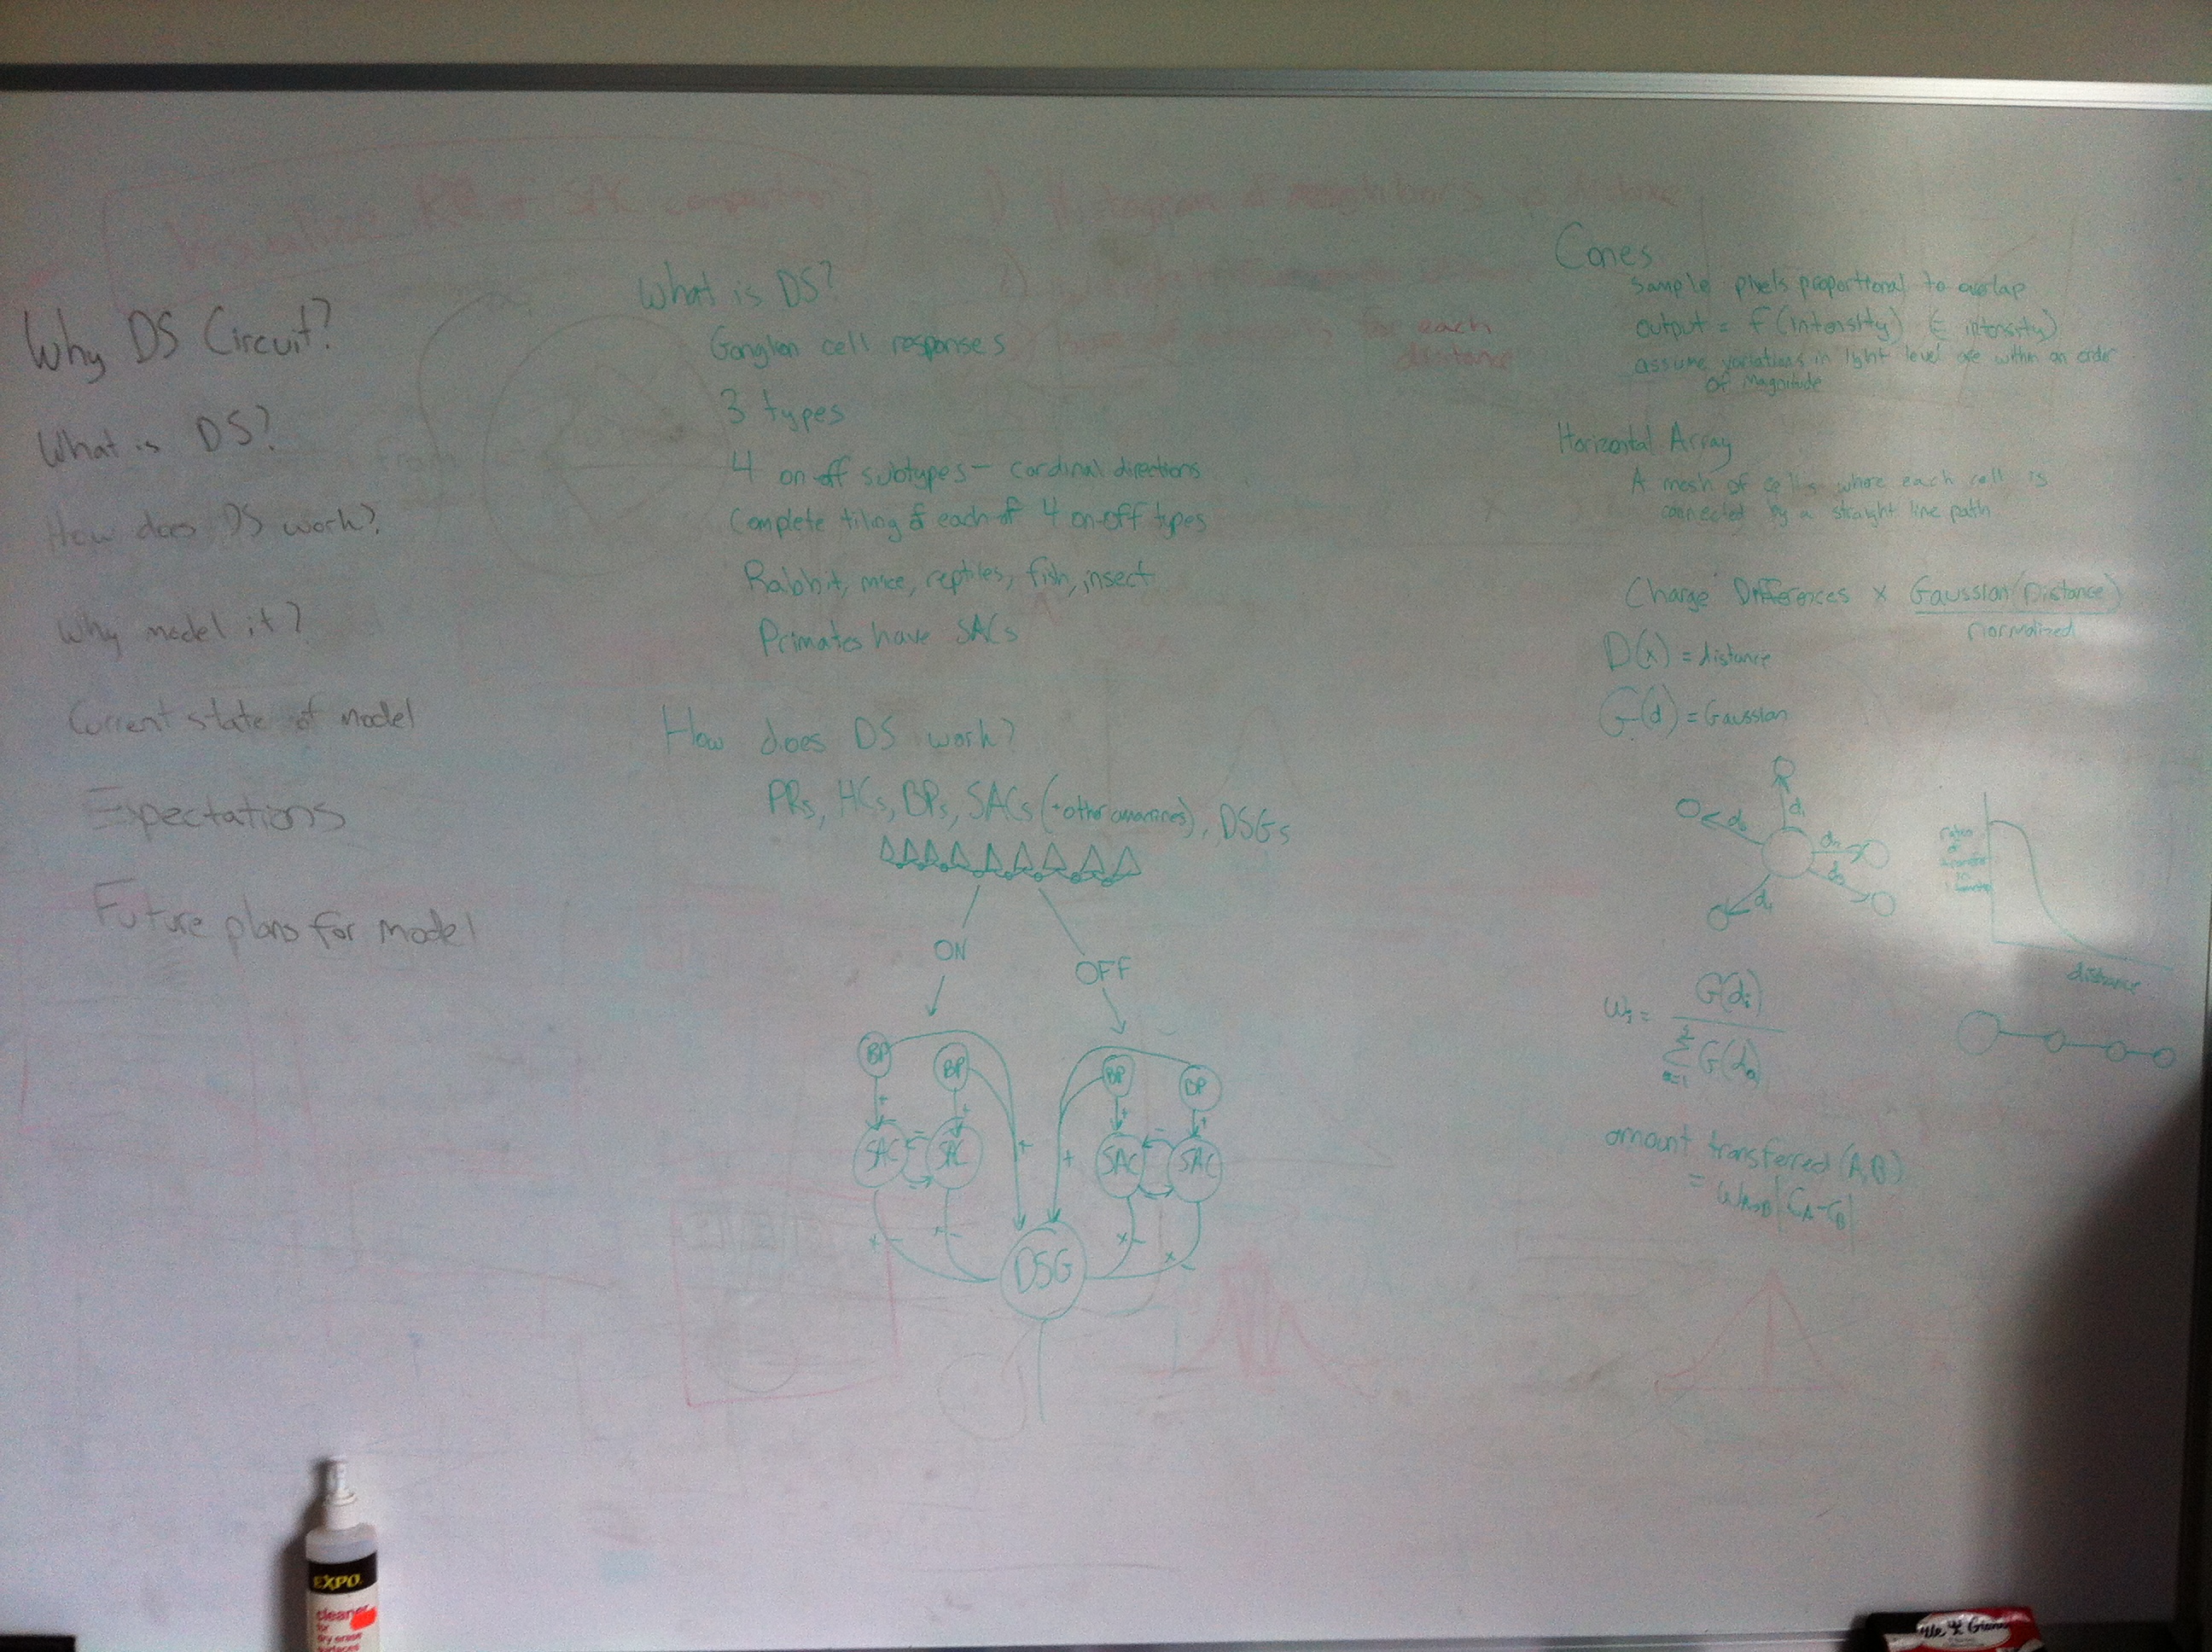 Why DS Circuit?
What is DS?
How does DS work?
Why model it?
Current state of model
Expectations
Future plans for model
What is DS?
Ganglion cell responses
3 types
4 on-off subtypes - cardinal directions
Complete tiling of each of 4 on-off types
Rabbit, mice, reptiles, fish, insect
Primates have SACs
How does DS work?
PRs, HCs, BPs, SACs (+other amacrines), DSGs
ON
OFF
BP BP BP BP
+ + + +
SAC SAC SAC SAC
- - - -
+ +
DSG
Cones
Sample pixels proportional to overlap
output = f(intensity) (= intensity)
assume variations in light level are within an order
of magnitude
Horizontal Array
A mesh of cells where each cell is
connected by a straight line path
Charge Differences x Gaussian(Distance)
normalized
D(x) = distance
G(d) = Gaussian
d1
d2
d3
d4
d5
ratio
of
transfer
in
distance
G(di)
Σ G(da)
a=1
amount transferred (A,B)
= WA→B |CA-CB|
for each
distance
EXPO
cleaner
for
dry erase
surfaces